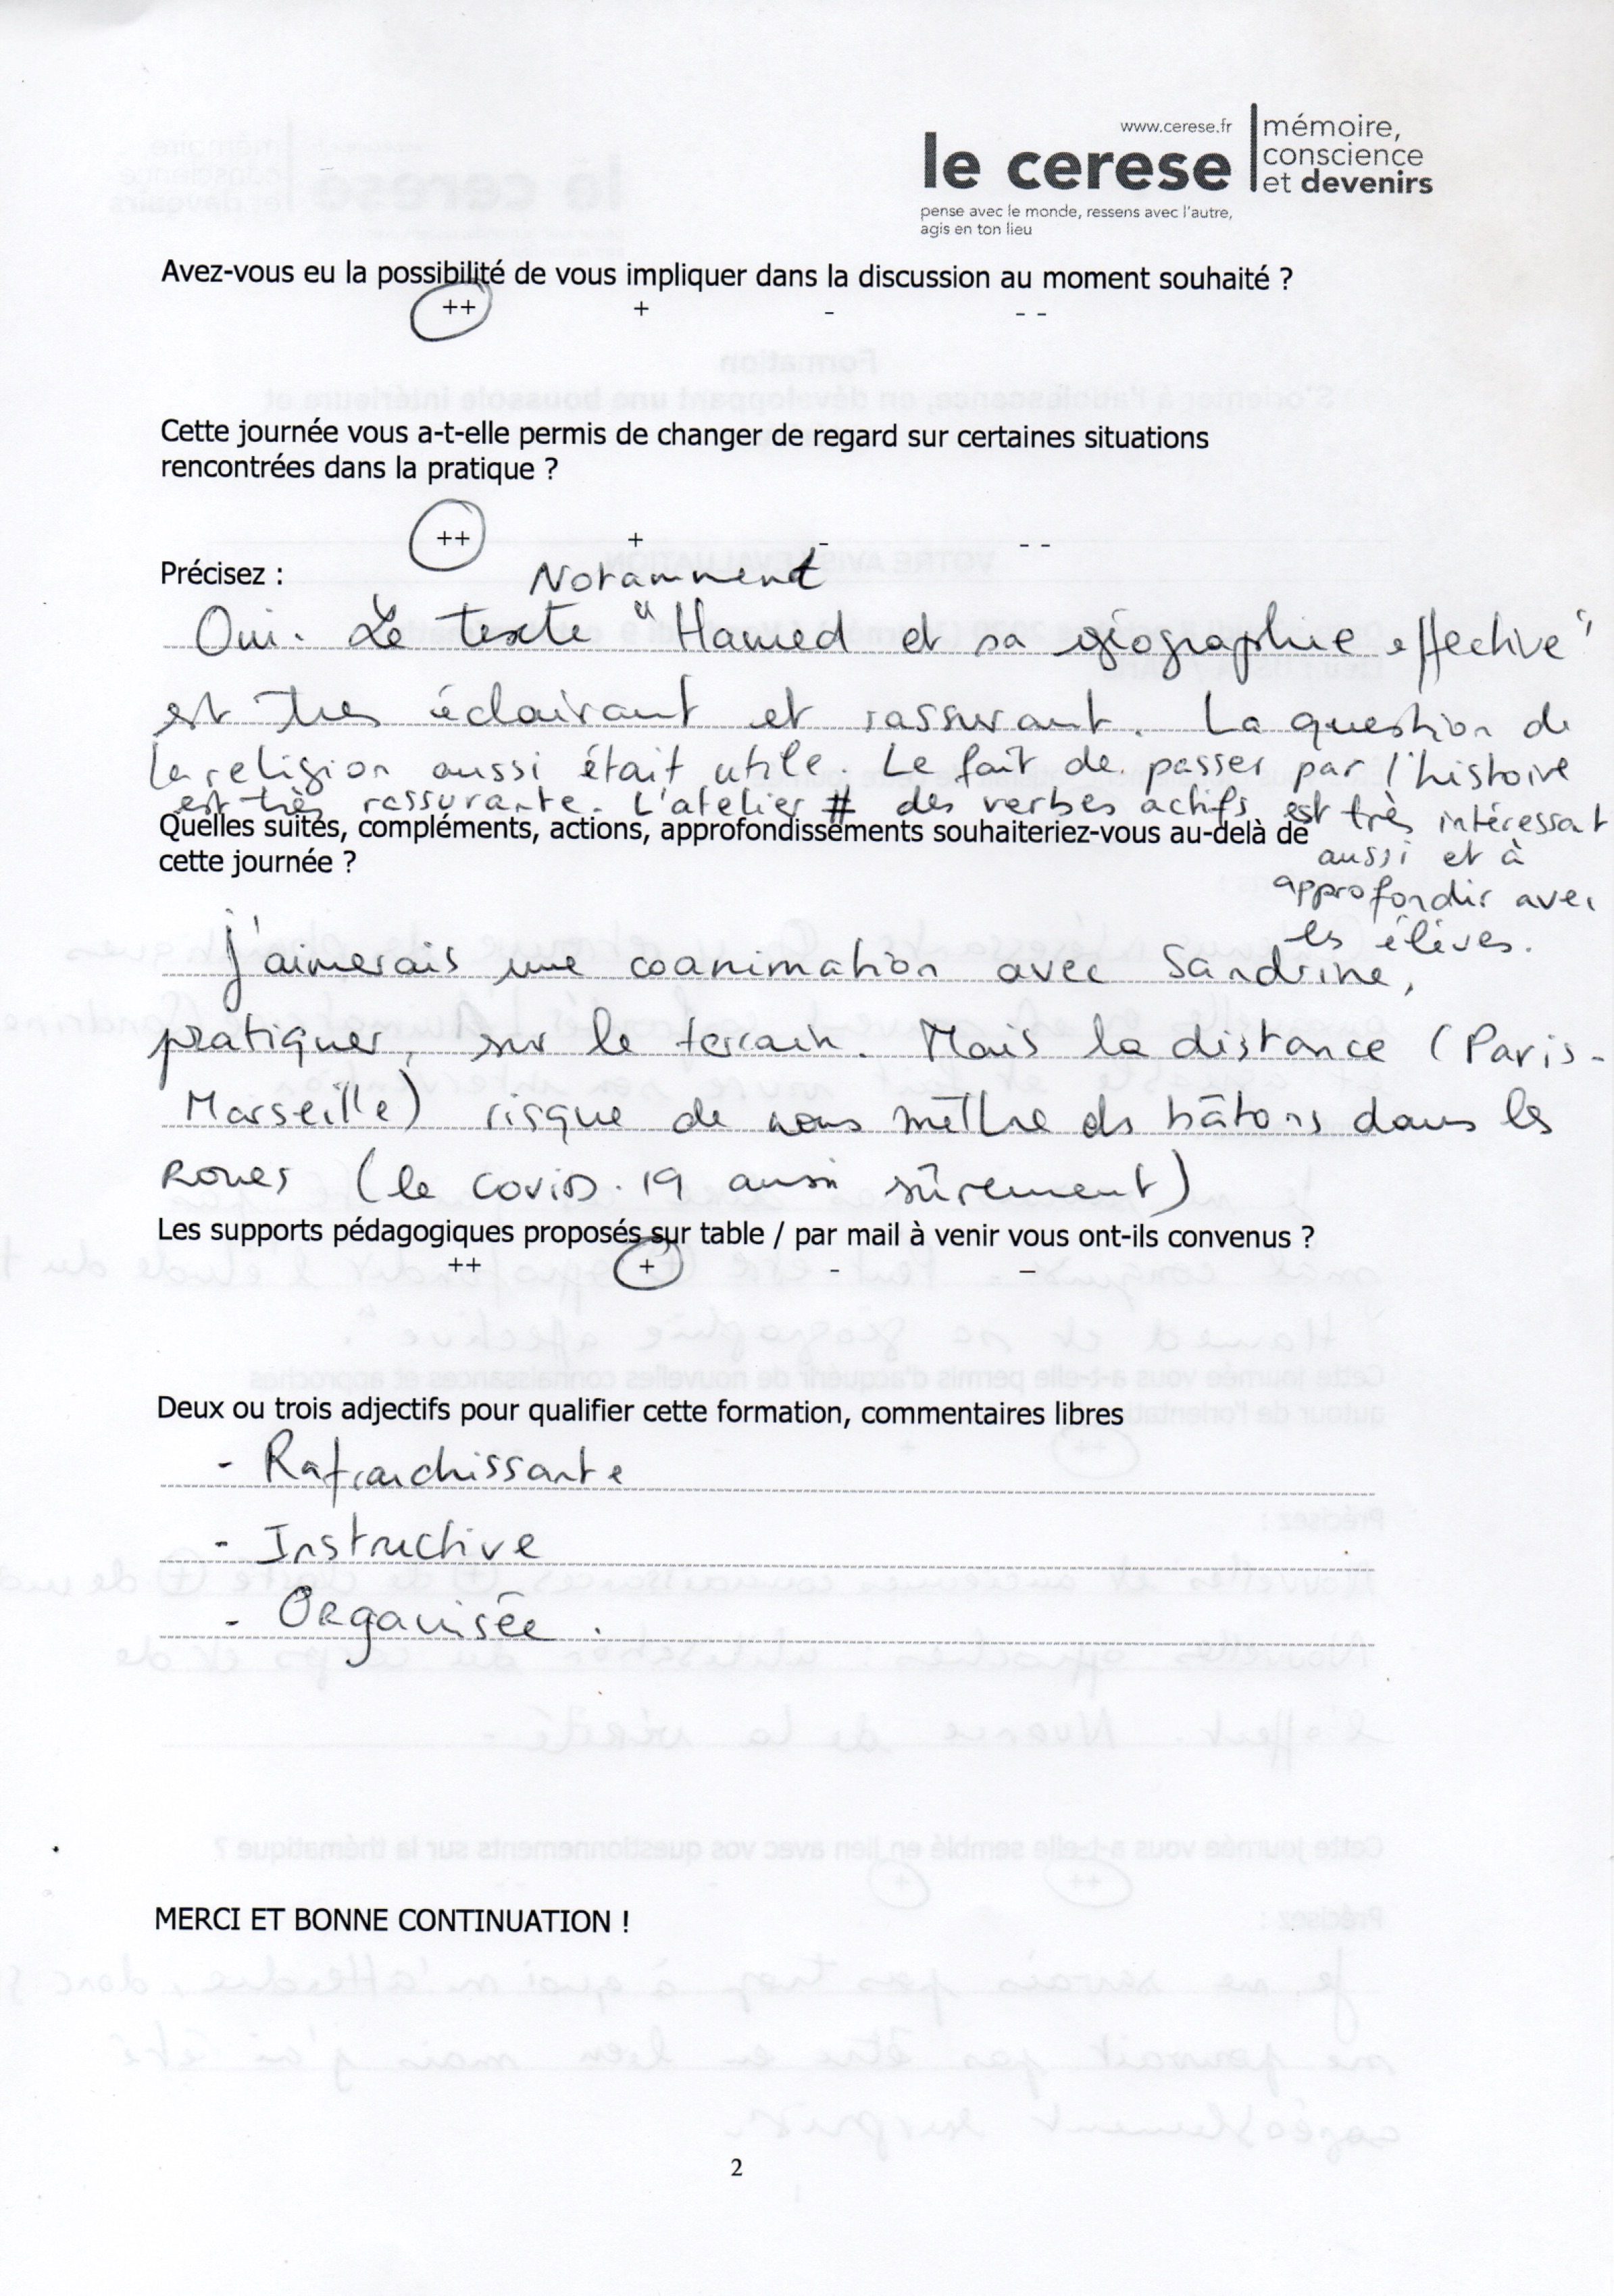 www.cerese.fr
le cerese
mémoire,
conscience
et devenirs
pense avec le monde, ressens avec l'autre,
agis en ton lieu
Avez-vous eu la possibilité de vous impliquer dans la discussion au moment souhaité ?
++ + - - -
Cette journée vous a-t-elle permis de changer de regard sur certaines situations
rencontrées dans la pratique ?
++ + - - -
Précisez : Notamment
Oui. Le texte "Hamed et sa géographie effective"
est très éclairant et rassurant. La question de
la religion aussi était utile. Le fait de passer par l'histoire
est très rassurante. L'atelier # des verbes actifs est très intéressant
aussi et à
approfondir avec
les élèves.
Quelles suites, compléments, actions, approfondissements souhaiteriez-vous au-delà de
cette journée ?
J'aimerais une coanimation avec Sandrine,
pratiquer, sur le terrain. Mais la distance (Paris-
Marseille) risque de nous mettre ds bâtons dans les
Roues (le covid.19 aussi sûrement)
Les supports pédagogiques proposés sur table / par mail à venir vous ont-ils convenus ?
++ + - –
Deux ou trois adjectifs pour qualifier cette formation, commentaires libres
- Rafraichissante
- Instructive
- Organisée.
MERCI ET BONNE CONTINUATION !
2